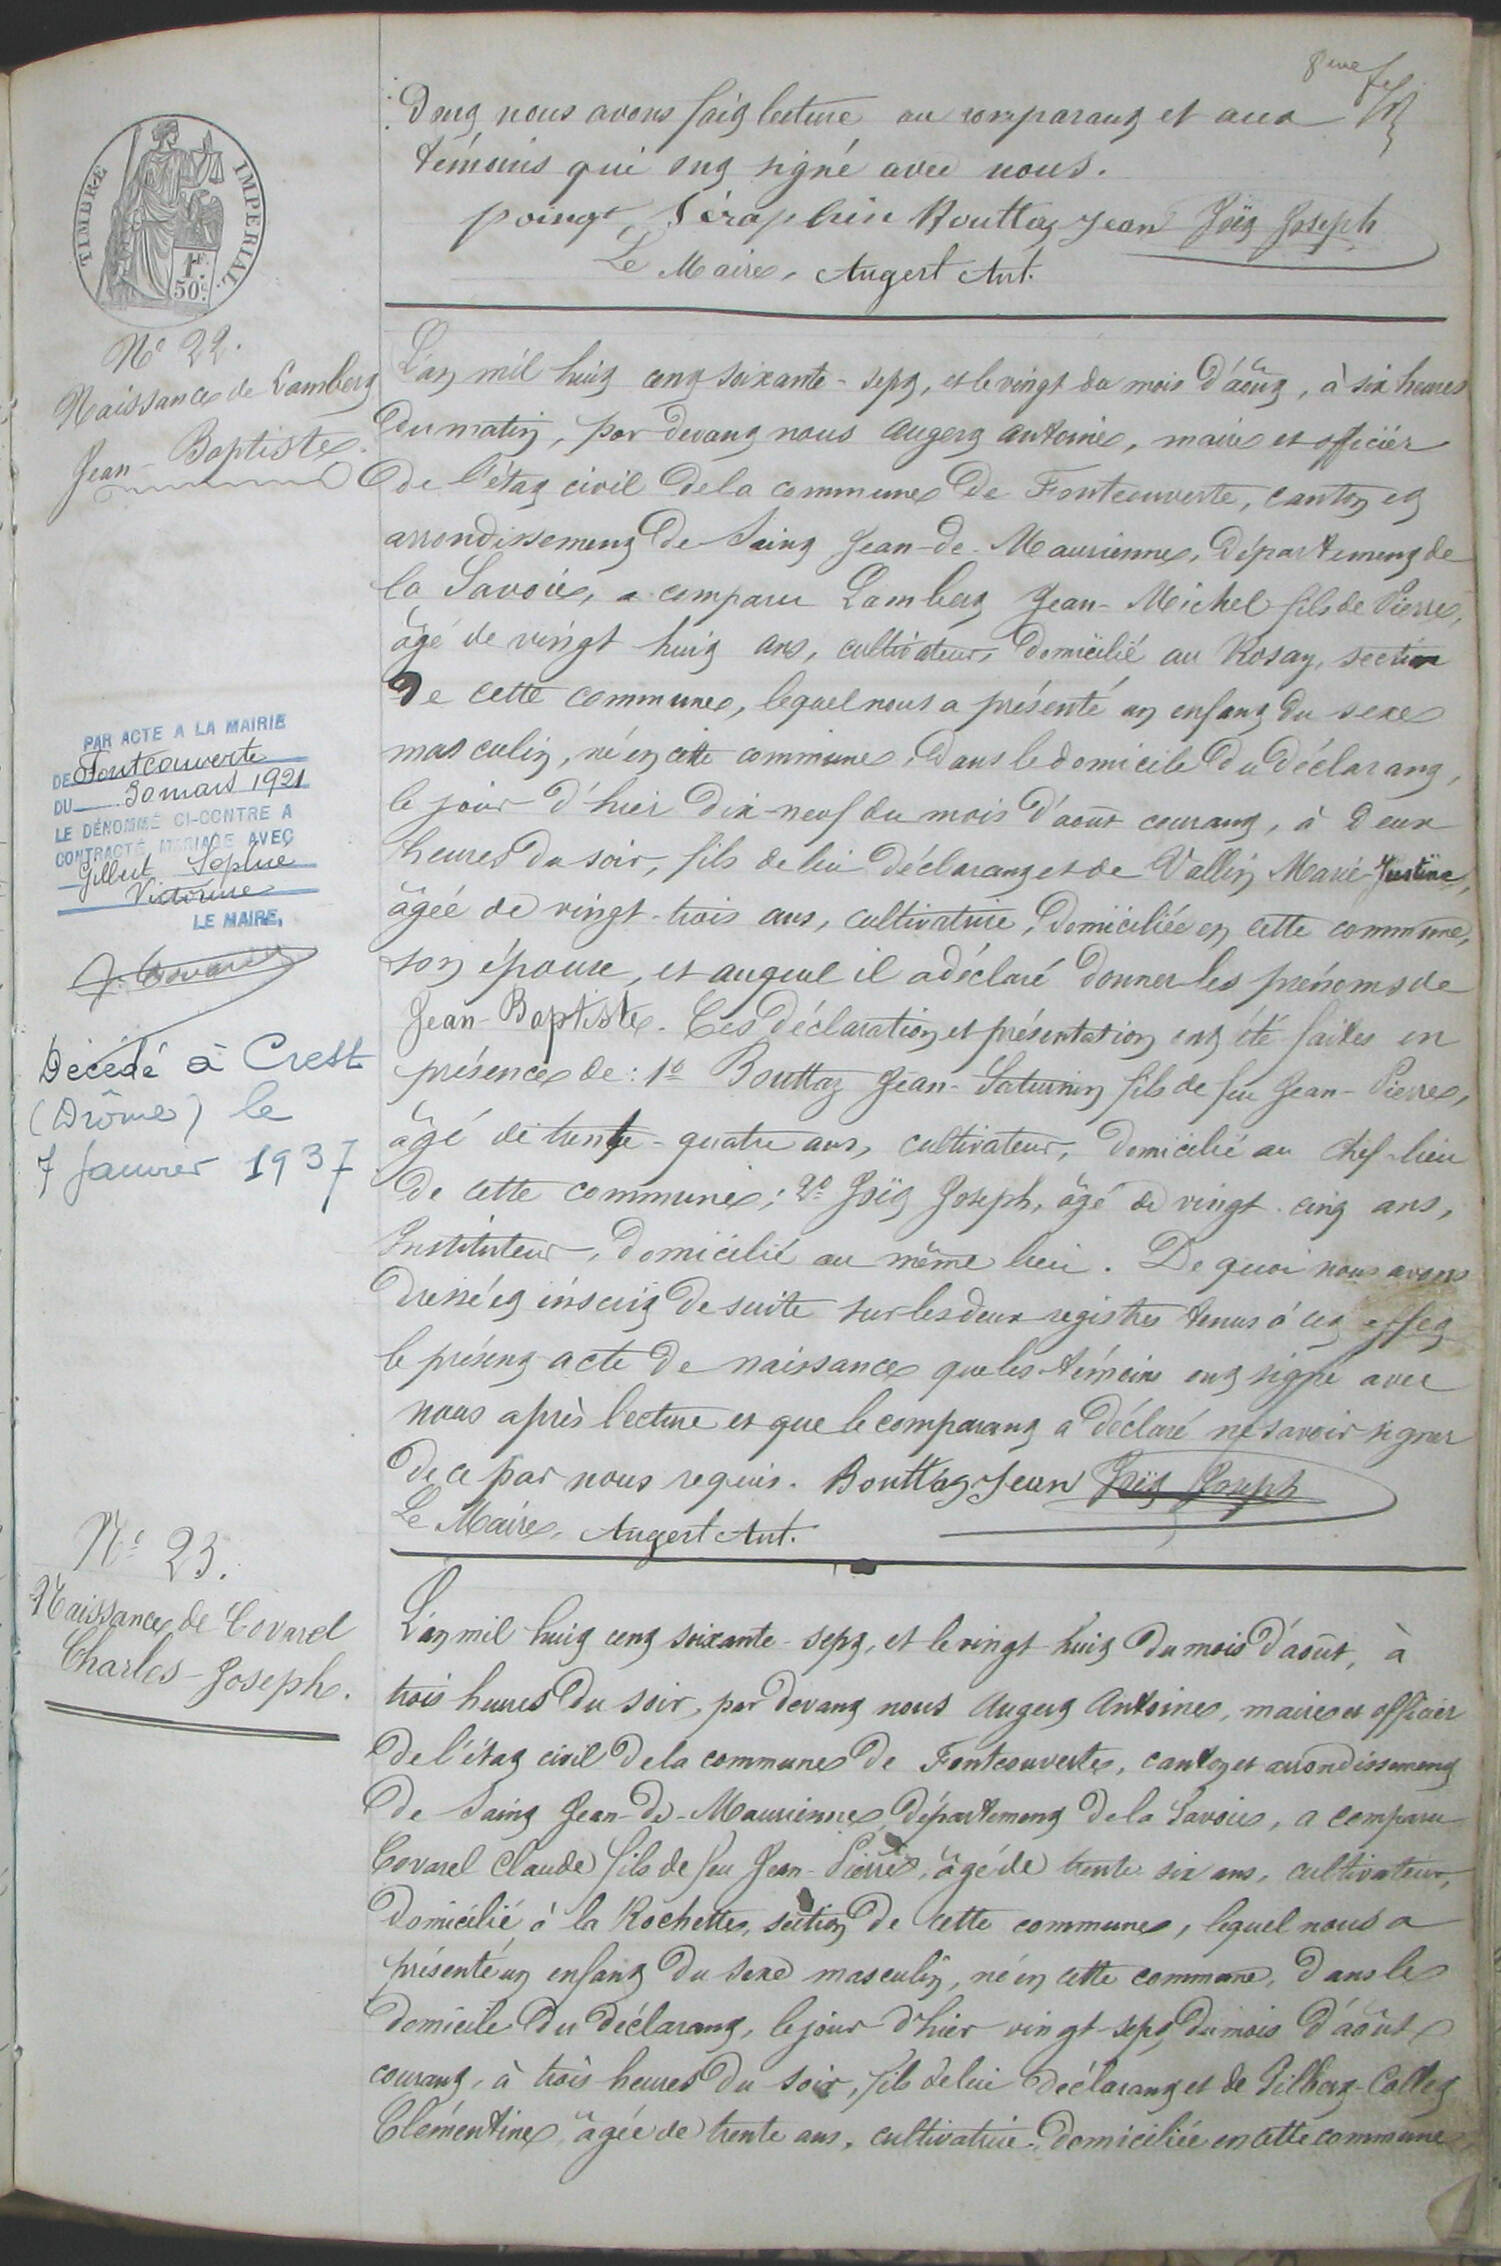 8me
Dont nous avons fait lecture au comparant et aux
témoins qui ont signé avec nous.
poingt Séraphin Bouttaz Jean Joët Joseph
Le Maire, Augert Ant.
TIMBRE IMPERIAL.
1F.
50c.
No 22.
Naissance de Lambert
Jean-Baptiste.
L'an mil huit cent soixante-sept, et le vingt du mois d'août, à six heures
du matin, par devant nous Augert Antoine, maire et officier
de l'état civil de la commune de Fontcouverte, canton et
arrondissement de Saint Jean-de-Maurienne, département de
la Savoie, a comparu Lambert Jean-Michel fils de Pierre,
âgé de vingt huit ans, cultivateur, domicilié au Rosay, section
de cette commune, lequel nous a présenté un enfant du sexe
masculin, né en cette commune, dans le domicile du déclarant,
le jour d'hier dix-neuf du mois d'août courant, à deux
heures du soir, fils de lui déclarant et de Vallin Marie-Justine,
âgée de vingt-trois ans, cultivatrice, domiciliée en cette commune,
son épouse, et auquel il a déclaré donner les prénoms de
Jean-Baptiste. Ces déclaration et présentation ont été faites en
présence de: 1o Bouttaz Jean-Saturnin fils de feu Jean-Pierre,
âgé de trente-quatre ans, cultivateur, domicilié au chef-lieu
de cette commune; 2o Joët Joseph, âgé de vingt-cinq ans,
Instituteur, domicilié au même lieu. De quoi nous avons
dressé et inscrit de suite sur les deux registres tenus à cet effet
le présent acte de naissance que les témoins ont signé avec
nous après lecture et que le comparant a déclaré ne savoir signer
de ce par nous requis. Bouttaz Jean Joët Joseph
Le Maire, Augert Ant.
PAR ACTE A LA MAIRIE
DE Fontcouverte
DU 30 mars 1921
LE DÉNOMMÉ CI-CONTRE A
CONTRACTÉ MARIAGE AVEC
Gilbert Sophie
Victorine
LE MAIRE,
Décédé à Crest
(Drôme) le
7 janvier 1937
No 23.
Naissance de Covarel
Charles-Joseph.
L'an mil huit cent soixante-sept, et le vingt-huit du mois d'août, à
trois heures du soir, par devant nous Augert Antoine, maire et officier
de l'état civil de la commune de Fontcouverte, canton et arrondissement
de Saint Jean-de-Maurienne, département de la Savoie, a comparu
Covarel Claude fils de feu Jean-Pierre, âgé de trente six ans, cultivateur,
domicilié à la Rochette, section de cette commune, lequel nous a
présenté un enfant du sexe masculin, né en cette commune, dans le
domicile du déclarant, le jour d'hier vingt-sept du mois d'août
courant, à trois heures du soir, fils de lui déclarant et de Gilbert-Collet
Clémentine, âgée de trente ans, cultivatrice, domiciliée en cette commune